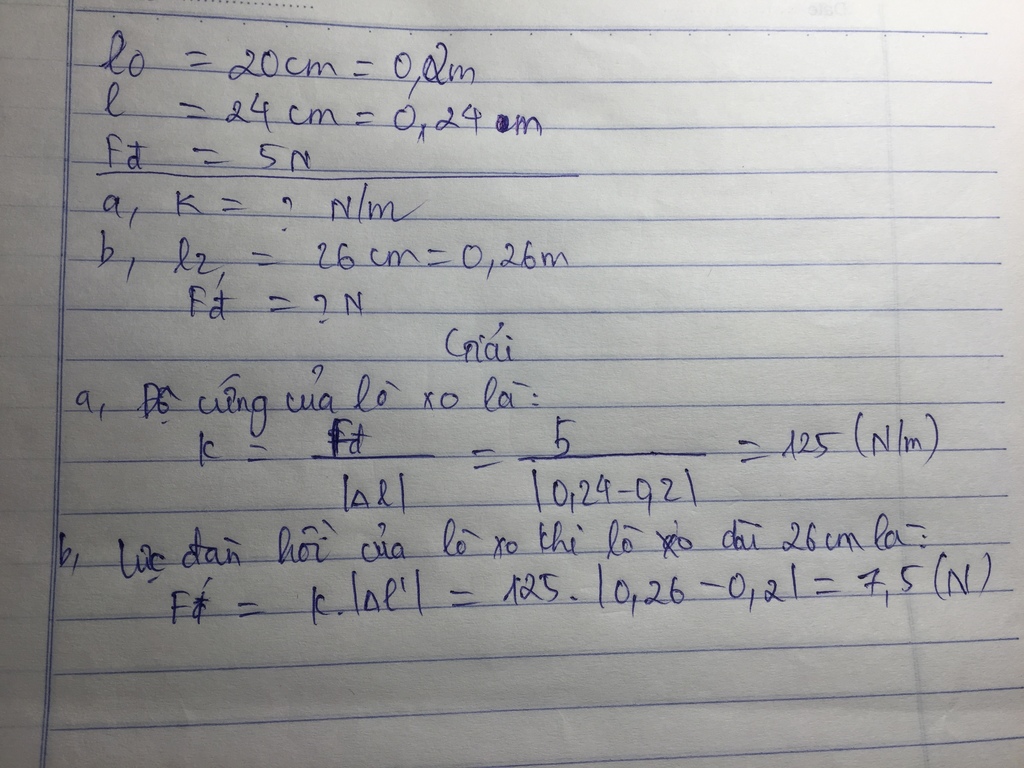 l0 = 20cm = 0,2m
l = 24 cm = 0,24 m
Fđ = 5N
a, K = ? N/m
b, l2, = 26 cm = 0,26m
F'đ = ? N
Giải
a, Độ cứng của lò xo là:
K = Fđ / |Δl| = 5 / |0,24-0,2| = 125 (N/m)
b, Lực đàn hồi của lò xo khi lò xo dài 26cm là:
F'đ = K.|Δl'| = 125. |0,26 - 0,2| = 7,5 (N)